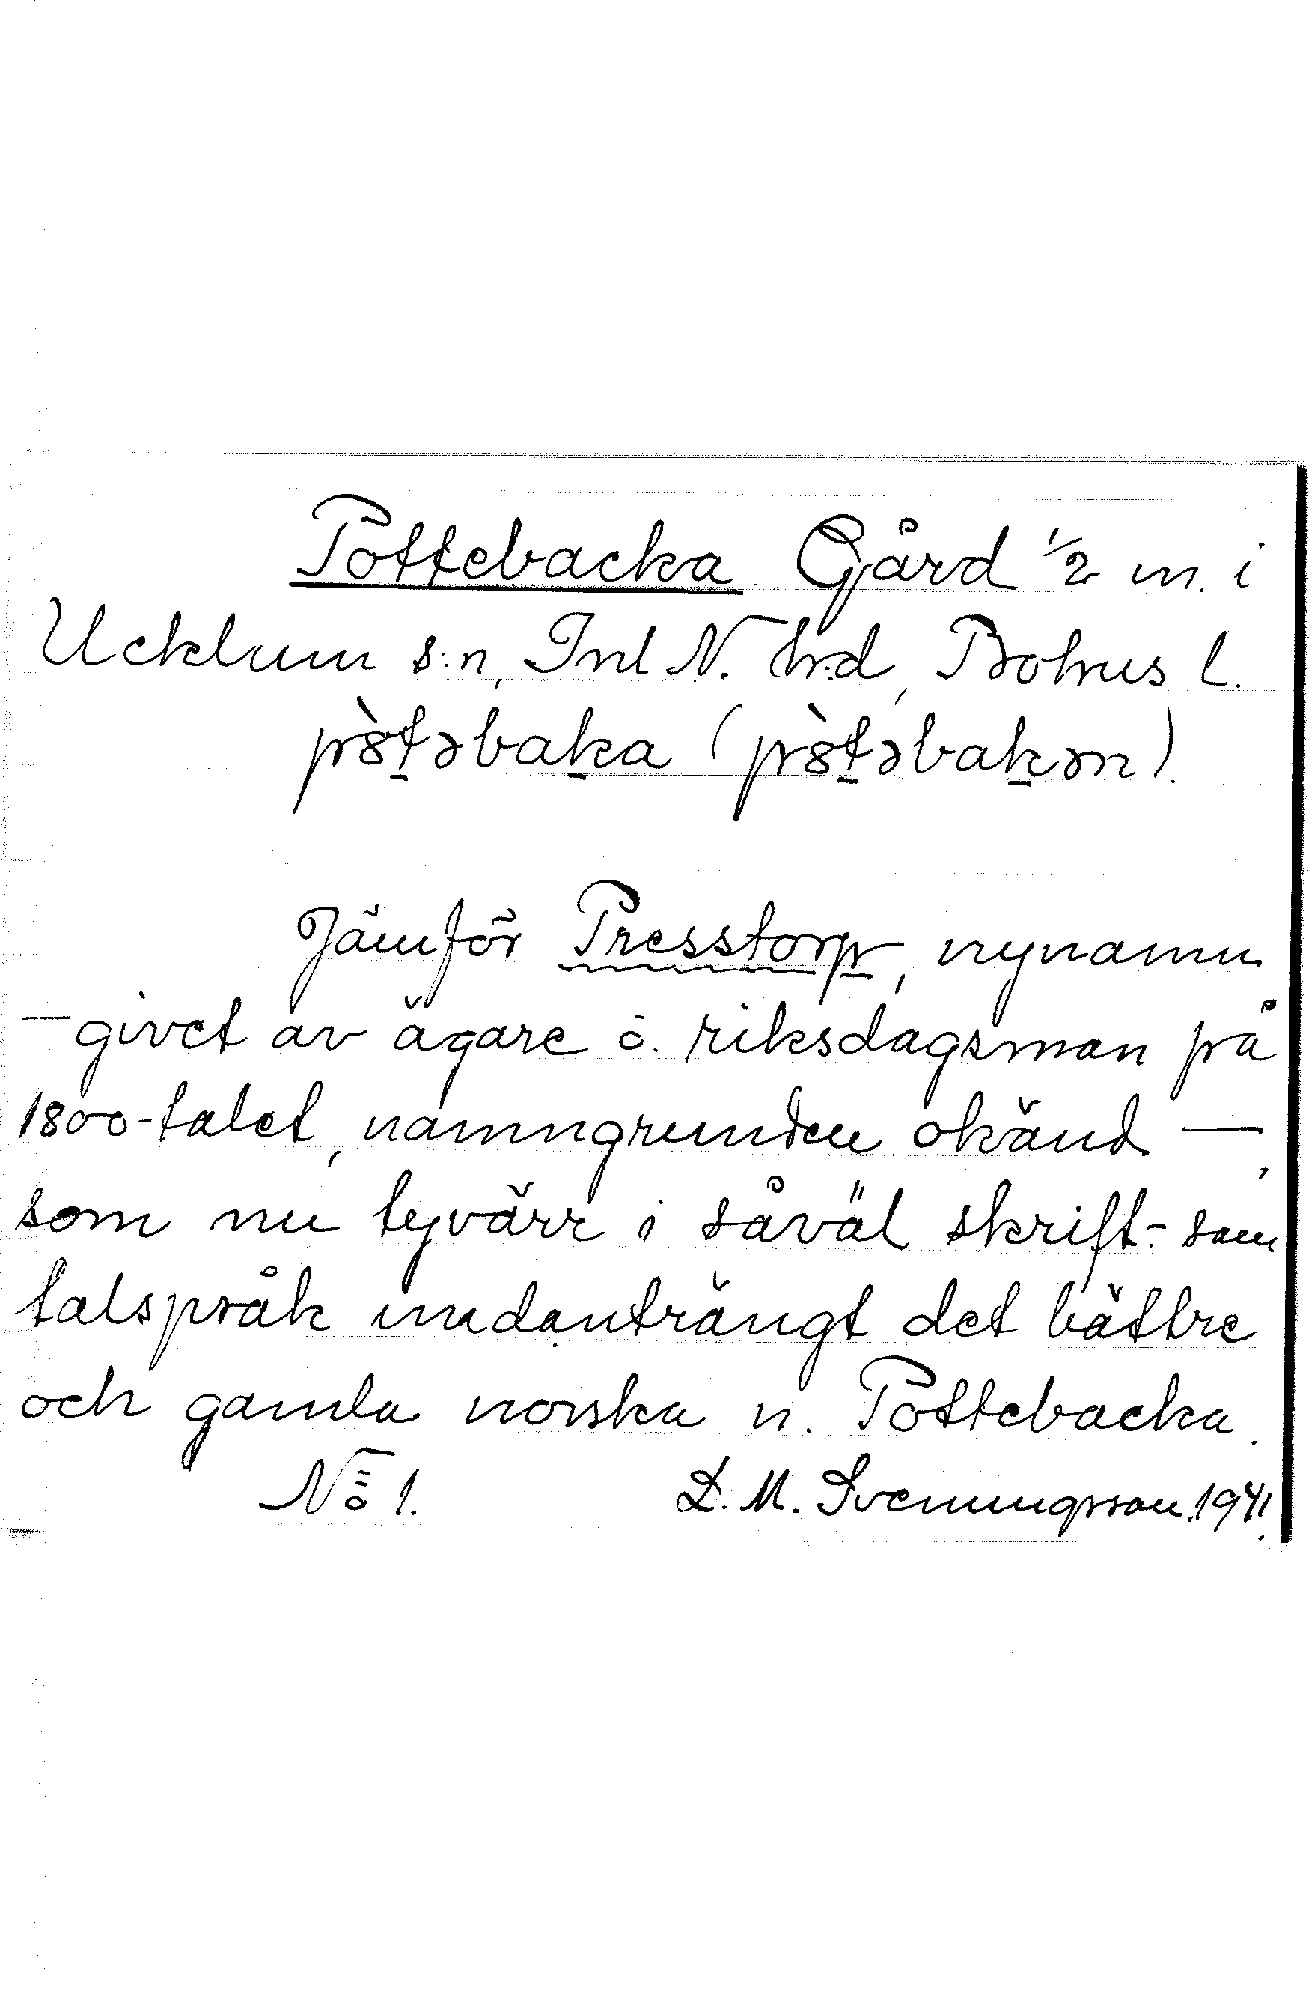 Pottebacka Gård 1/2 m. i
Ucklum s:n, Inl N. h:d, Bohus l.
pòtəbaka (pòtəbakən).
Jämför Presstorp, nynamn
— givet av ägare o. riksdagsman på
1800-talet, namngrunden okänd —,
som nu tyvärr i såväl skrift- som
talspråk undanträngt det bättre
och gamla norska n. Pottebacka.
No 1. D. M. Svenungsson 1941.